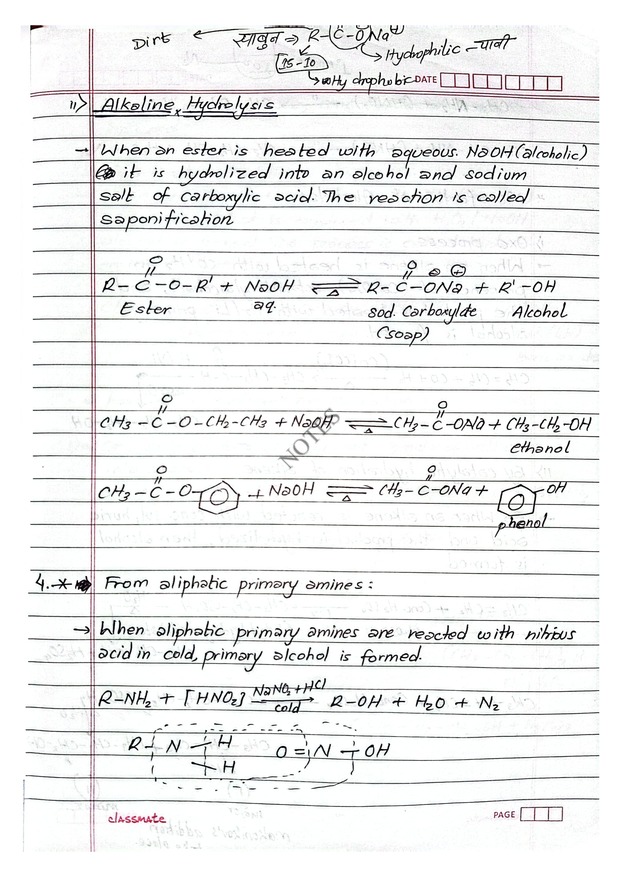 Dirt ← साबुन ⇒ R-C-ONa
→ Hydrophilic - पानी
15-10
→ Hydrophobic DATE
ii) Alkaline Hydrolysis
→ When an ester is heated with aqueous NaOH (alcoholic)
it is hydrolized into an alcohol and sodium
salt of carboxylic acid. The reaction is called
saponification
O O ⊖ ⊕
R-C-O-R' + NaOH ⇌ R-C-ONa + R'-OH
Ester aq. Δ sod. Carboxylate Alcohol
(soap)
O O
CH3-C-O-CH2-CH3 + NaOH ⇌ CH3-C-ONa + CH3-CH2-OH
Δ ethanol
NOTES
O O
CH3-C-O- + NaOH ⇌ CH3-C-ONa + OH
Δ phenol
4.* From aliphatic primary amines:
→ When aliphatic primary amines are reacted with nitrous
acid in cold, primary alcohol is formed.
R-NH2 + [HNO2] NaNO2+HCl → cold R-OH + H2O + N2
R-N-H O=N-OH
-H
classmate PAGE